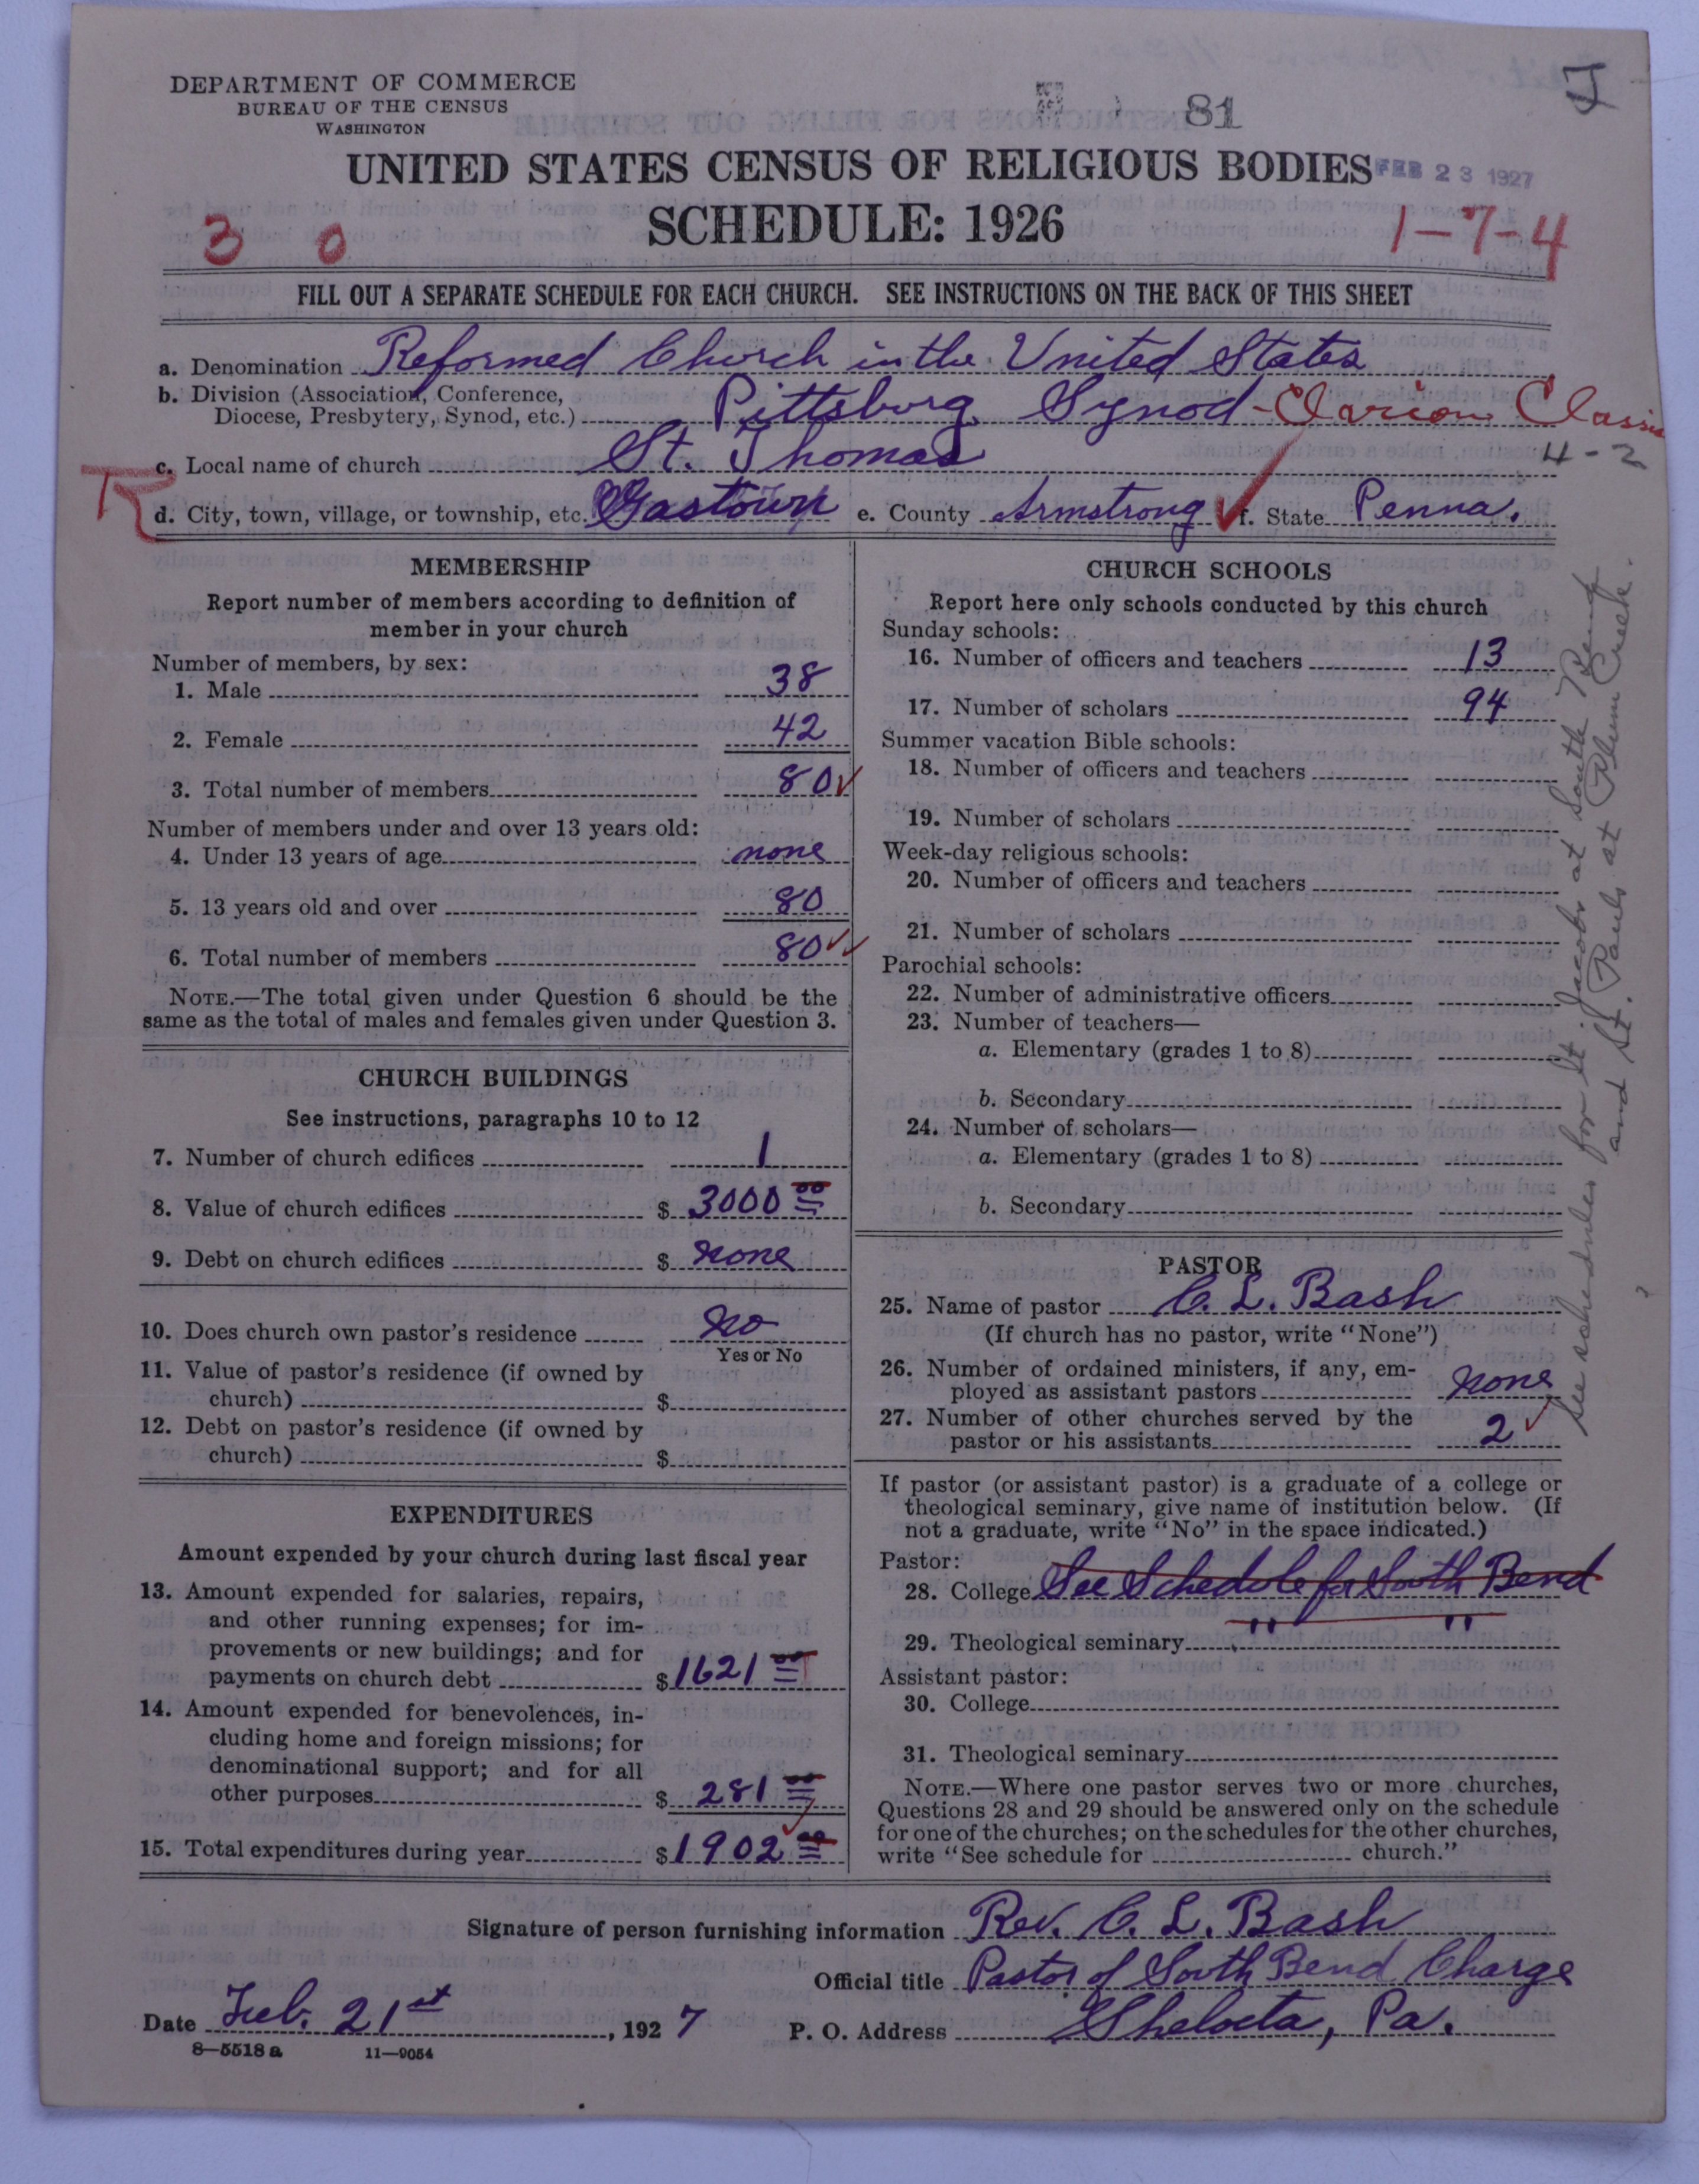 DEPARTMENT OF COMMERCE
BUREAU OF THE CENSUS
WASHINGTON
81
UNITED STATES CENSUS OF RELIGIOUS BODIES
FEB 23 1927
SCHEDULE: 1926
3 0
1-7-4
FILL OUT A SEPARATE SCHEDULE FOR EACH CHURCH. SEE INSTRUCTIONS ON THE BACK OF THIS SHEET
a. Denomination Reformed Church in the United States
b. Division (Association, Conference,
Diocese, Presbytery, Synod, etc.) Pittsburg Synod - Clarion Classis
c. Local name of church St. Thomas 4-2
d. City, town, village, or township, etc. Gastown e. County Armstrong f. State Penna.
MEMBERSHIP
Report number of members according to definition of
member in your church
Number of members, by sex:
1. Male 38
2. Female 42
3. Total number of members 80
Number of members under and over 13 years old:
4. Under 13 years of age none
5. 13 years old and over 80
6. Total number of members 80
NOTE.—The total given under Question 6 should be the
same as the total of males and females given under Question 3.
CHURCH BUILDINGS
See instructions, paragraphs 10 to 12
7. Number of church edifices 1
8. Value of church edifices $ 3000 00
9. Debt on church edifices $ none
10. Does church own pastor's residence No
Yes or No
11. Value of pastor's residence (if owned by
church) $
12. Debt on pastor's residence (if owned by
church) $
EXPENDITURES
Amount expended by your church during last fiscal year
13. Amount expended for salaries, repairs,
and other running expenses; for im-
provements or new buildings; and for
payments on church debt $ 1621 00
14. Amount expended for benevolences, in-
cluding home and foreign missions; for
denominational support; and for all
other purposes $ 281 00
15. Total expenditures during year $ 1902 00
CHURCH SCHOOLS
Report here only schools conducted by this church
Sunday schools:
16. Number of officers and teachers 13
17. Number of scholars 94
Summer vacation Bible schools:
18. Number of officers and teachers
19. Number of scholars
Week-day religious schools:
20. Number of officers and teachers
21. Number of scholars
Parochial schools:
22. Number of administrative officers
23. Number of teachers—
a. Elementary (grades 1 to 8)
b. Secondary
24. Number of scholars—
a. Elementary (grades 1 to 8)
b. Secondary
PASTOR
25. Name of pastor C. L. Bash
(If church has no pastor, write "None")
26. Number of ordained ministers, if any, em-
ployed as assistant pastors none
27. Number of other churches served by the
pastor or his assistants 2
If pastor (or assistant pastor) is a graduate of a college or
theological seminary, give name of institution below. (If
not a graduate, write "No" in the space indicated.)
Pastor:
28. College See Schedule for South Bend
29. Theological seminary " "
Assistant pastor:
30. College
31. Theological seminary
NOTE.—Where one pastor serves two or more churches,
Questions 28 and 29 should be answered only on the schedule
for one of the churches; on the schedules for the other churches,
write "See schedule for church."
See schedules for St. Jacobs at South Bend
and St. Pauls at Plum Creek.
Signature of person furnishing information Rev. C. L. Bash
Official title Pastor of South Bend Charge
Date Feb. 21st, 1927 P. O. Address Shelocta, Pa.
8—5518 a 11—9054